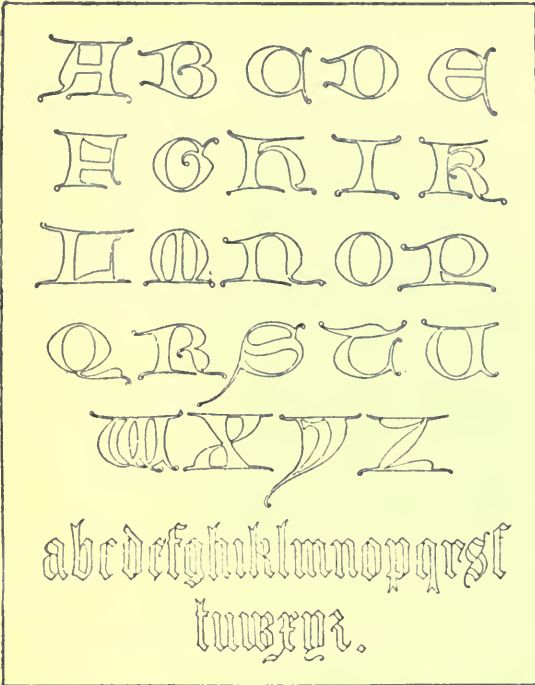 A B C D E
F G H I K
L M N O P
Q R S T U
W X Y Z
abcdefghiklmnopqrsſ
tuwxyz.